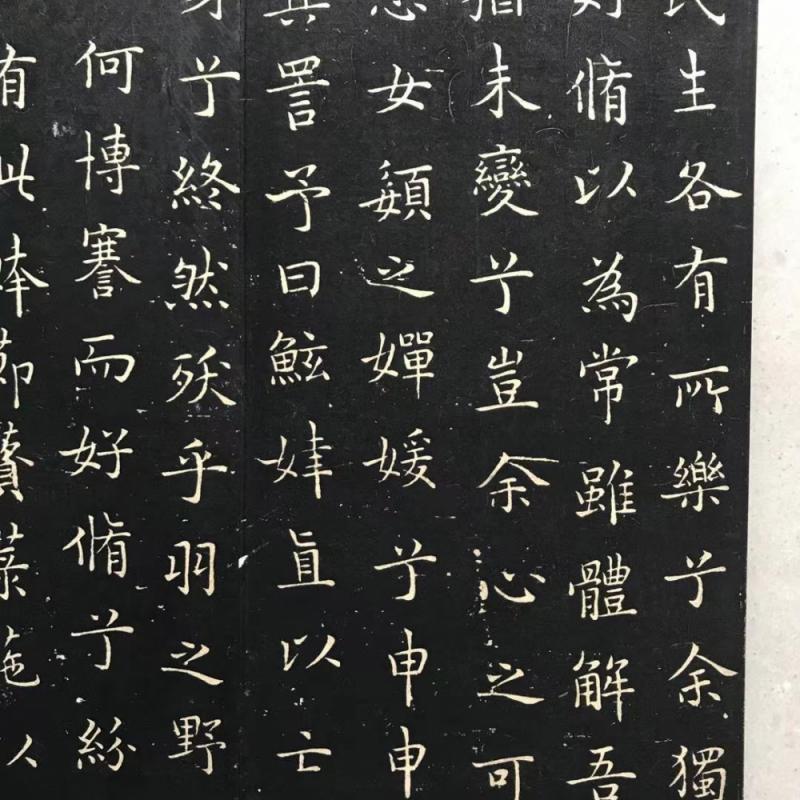 民生各有所樂兮余獨
好脩以為常雖體解吾
猶未變兮豈余心之可
女嬃之嬋媛兮申申
其詈予曰鮌婞直以亡
身兮終然殀乎羽之野
何博謇而好脩兮紛
有此姱節薋菉葹以